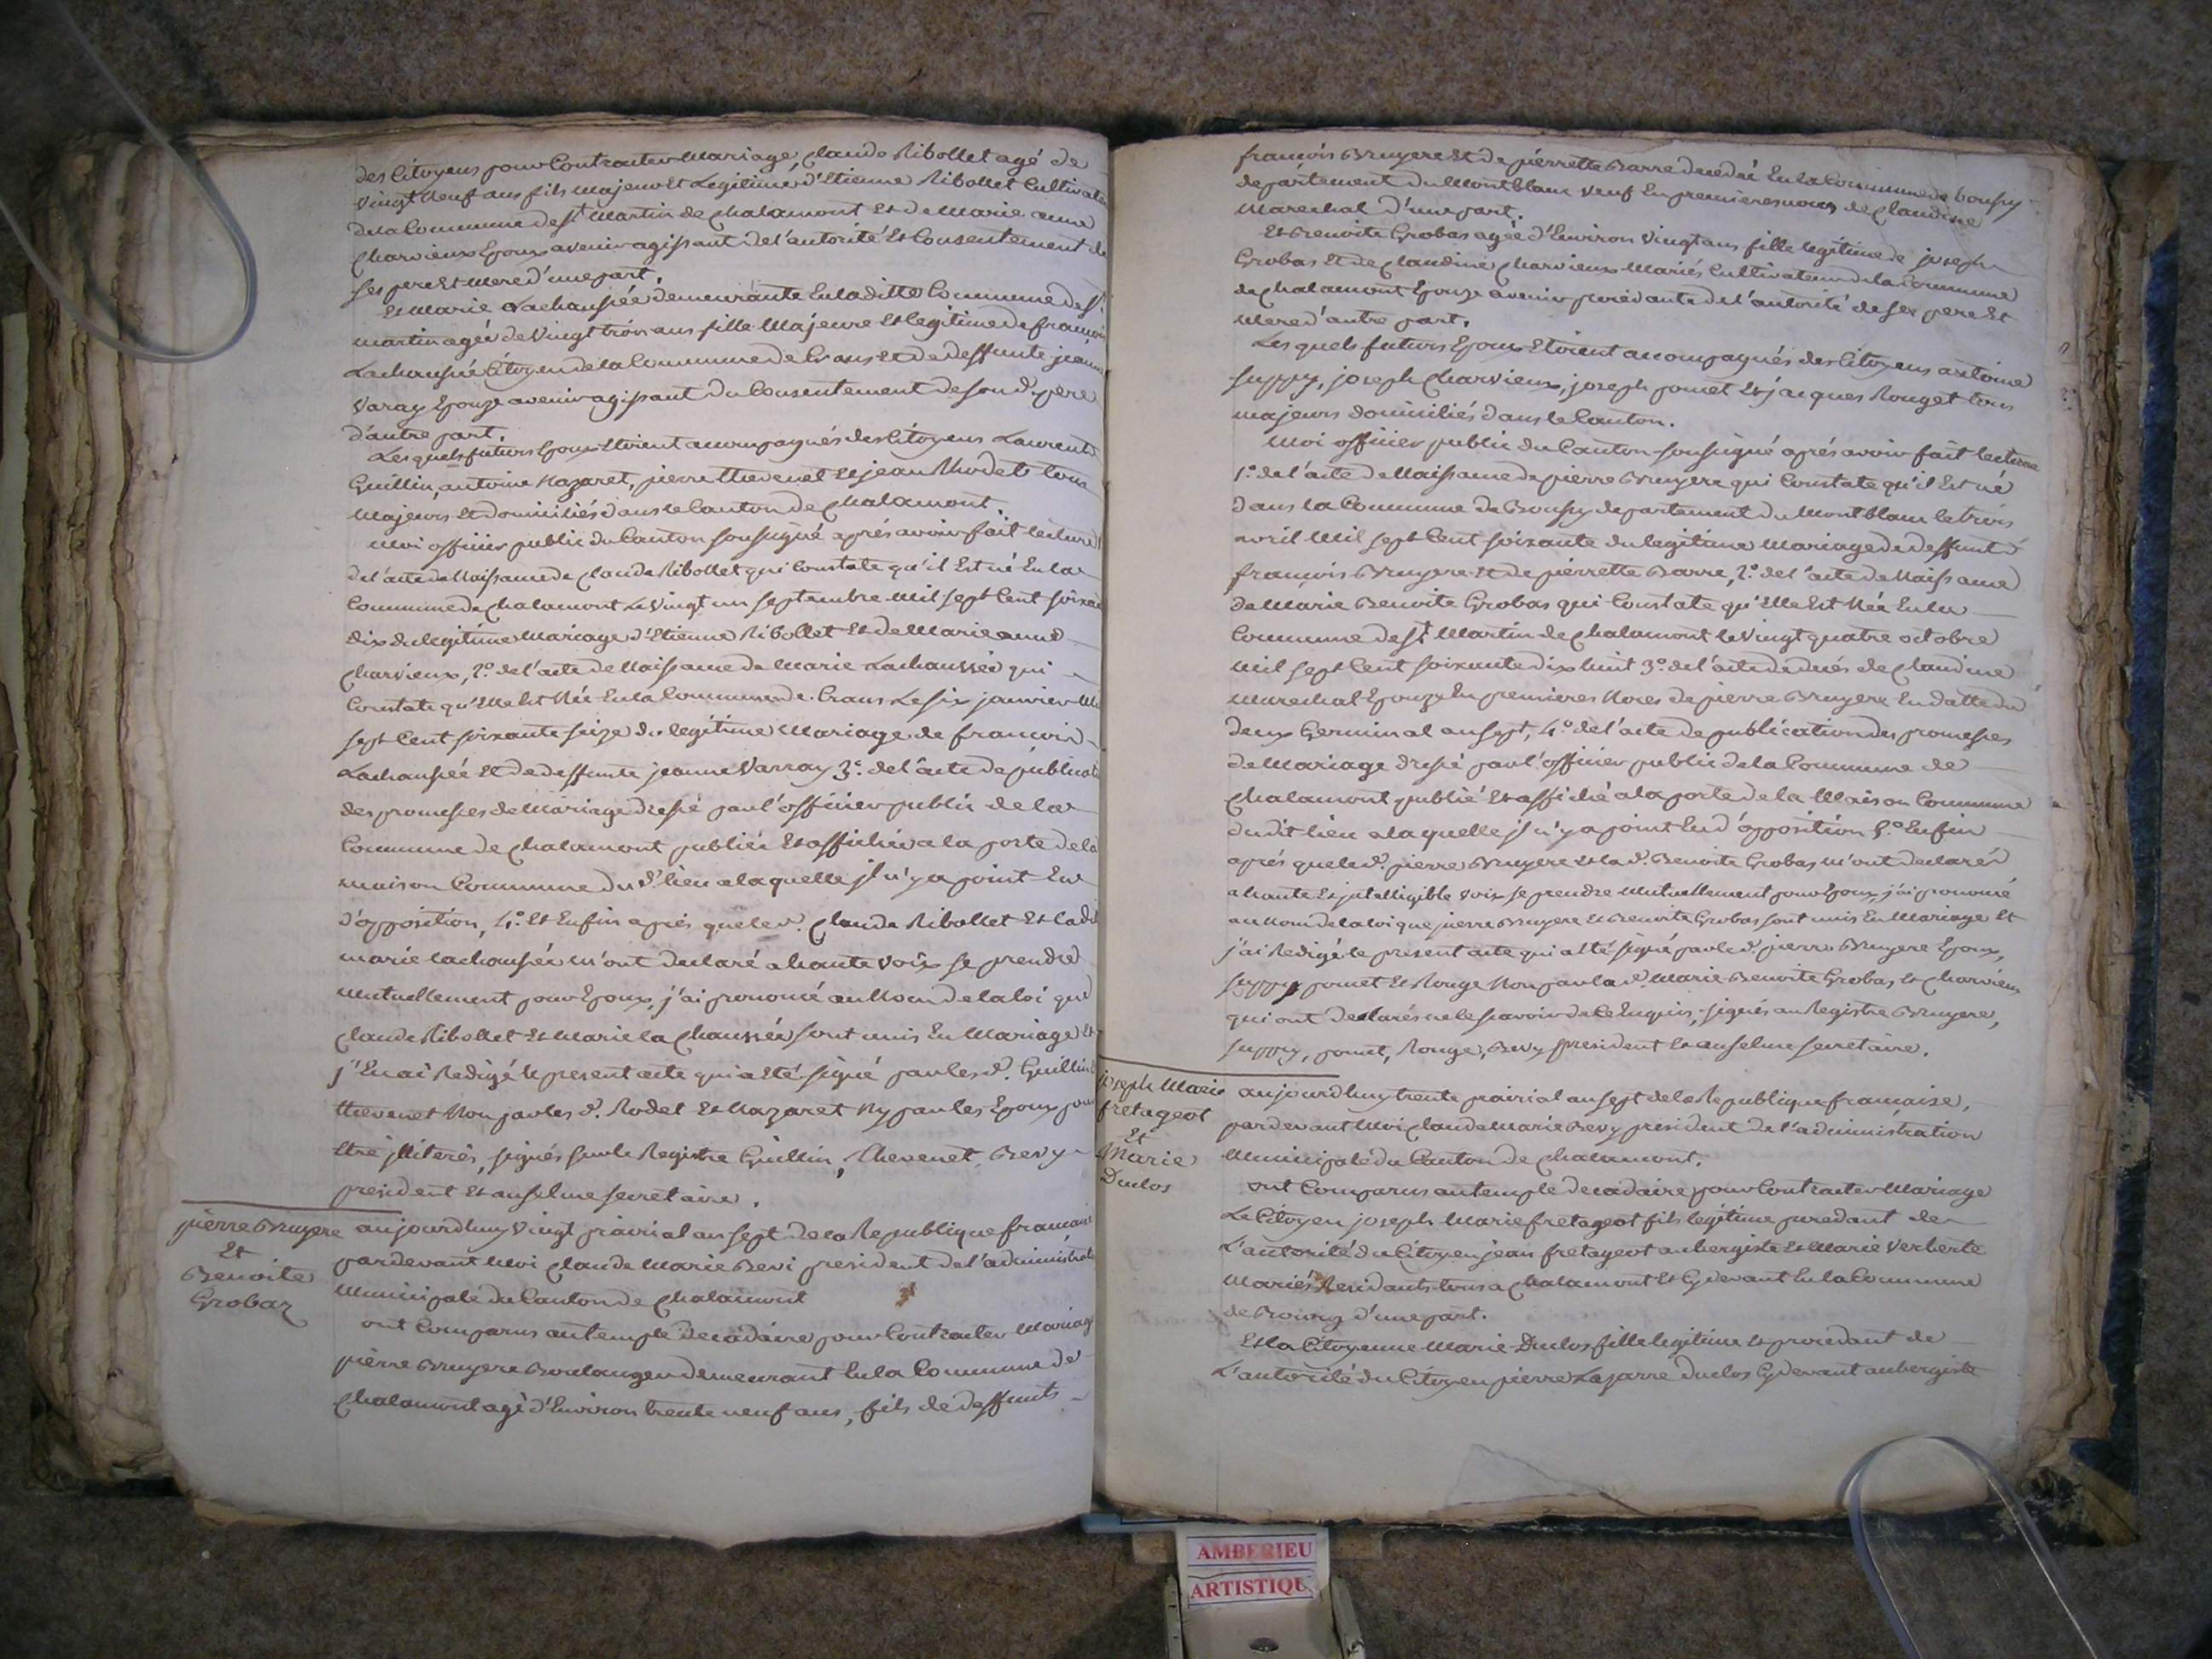 des Citoyens pour Contracter Mariage, Claude Ribollet agé de
vingt neuf ans fils majeur et Legitime d'Etienne Ribollet Cultivateur
de la Commune de St Martin de Chalamont et de Marie anne
Charvieux Epoux avenir agissant de l'autorité et Consentement de
ses pere et mere d'une part.
et Marie Lachaussée demeurante en laditte Commune de St
martin agée de vingt trois ans fille Majeure et legitime de francois
Lachaussée Citoyen de la Commune de Crans et de deffunte jeanne
Varay Epouse avenir agissant du Consentement de son d. pere
d'autre part.
Les quels futurs Epoux etoient accompagnés des Citoyens Laurent
Guillin, antoine Nazaret, pierre thevenet et jean Rhodet tous
Majeurs et domiciliés dans le Canton de Chalamont.
Moi officier public du Canton soussigné aprés avoir fait lecture
de l'acte de Naissance de Claude Ribollet qui Constate qu'il Est né En la
Commune de Chalamont Le vingt un septembre mil sept Cent soixante
dix du legitime Mariage d'Etienne Ribollet et de Marie anne
Charvieux, 2.º de l'acte de Naissance de Marie Lachaussée qui
Constate qu'elle Est Née En la Commune de Crans Le six janvier Mil
sept Cent soixante seize du legitime Mariage de francois
Lachaussée et de deffunte jeanne Varray 3.º de l'acte de publication
des promesses de Mariage dressé par l'officier public de la
Commune de Chalamont publiée et affichée a la porte de la
maison Commune du d. lieu a laquelle jl n'y a point Eu
d'opposition, 4.º et Enfin aprés que le d. Claude Ribollet et la dite
marie lachaussée m'ont declaré a haute voix se prendre
mutuellement pour Epoux, j'ai prononcé au Nom de la loi que
Claude Ribollet et Marie la Chaussée sont unis En Mariage et
j'En ai Redigé le present acte qui a eté signé par les d. Guillin
thevenet Non par les d. Rodet et Nazaret Ny par les Epoux pour
etre jlliterés, signés sur le Registre Guillin, Thevenet, Bevy
president et anselme secretaire.
pierre Bruyere
et
Benoite
Grobaz
aujourdhuy vingt prairial an sept de la Republique francaise
pardevant Moi Claude Marie Bevi president de l'administration
Municipale du Canton de Chalamont
ont Comparus au temple decadaire pour Contracter Mariage
pierre Bruyere Boulanger demeurant En la Commune de
Chalamont agé d'Environ trente neuf ans, fils de deffunts
francois Bruyere et de pierrette Barre decedé En la Commune de boussy
departement du Montblanc veuf En premieres noces de Claudine
Marechal d'une part.
et Benoite Grobas agée d'Environ vingt ans fille legitime de joseph
Grobas et de Claudine Charvieux Mariés Cultivateurs de la Commune
de Chalamont Epouse avenir procedante de l'autorité de ses pere et
Mere d'autre part.
Les quels futurs Epoux etoient accompagnés des Citoyens antoine
suppy, joseph Charvieux, joseph pomet et jacques Rouget tous
majeurs domiciliés dans le Canton.
Moi officier public du Canton soussigné aprés avoir fait lecture
1.º de l'acte de Naissance de pierre Bruyere qui Constate qu'il Est né
dans la Commune de Boussy departement du Montblanc le trois
avril Mil sept Cent soixante du legitime Mariage de deffunt
francois Bruyere et de pierrette Barre, 2.º de l'acte de Naissance
de Marie Benoite Grobas qui Constate qu'elle Est Née En la
Commune de St Martin de Chalamont le vingt quatre octobre
mil sept Cent soixante dix huit 3.º de l'acte de decés de Claudine
Marechal Epouze En premieres Noces de pierre Bruyere En datte du
deux Germinal an sept, 4.º de l'acte de publication des promesses
de Mariage dressé par l'officier public de la Commune de
Chalamont publié et affiché a la porte de la Maison Commune
du dit lieu a laquelle jl n'y a point Eu d'opposition 5.º Enfin
aprés que le d. pierre Bruyere et la d. Benoite Grobas m'ont declarés
a haute et jntelligible voix se prendre mutuellement pour Epoux, j'ai prononcé
au Nom de la loi que pierre Bruyere et Benoite Grobas sont unis En Mariage et
j'ai Redigé le present acte qui a eté signé par le d. pierre Bruyere Epoux,
suppy pomet et Rouge Non par la d. Marie Benoite Grobas et Charvieux
qui ont declarés ne le scavoir de ce Enquis, signés au Registre Bruyere,
suppy, pomet, Rouge, Bevy president et anselme secretaire.
joseph Marie
fretageot
et
Marie
Duclos
aujourdhuy trente prairial an sept de la Republique francaise,
pardevant Moi Claude Marie Bevy president de l'administration
Municipale du Canton de Chalamont.
ont Comparus au temple decadaire pour Contracter Mariage
Le Citoyen joseph Marie fretageot fils legitime procedant de
L'autorité du Citoyen jean fretageot aubergiste et Marie Verherte
Mariés Residants tous a Chalamont et Cydevant En la Commune
de Bourg d'une part.
et la Citoyenne Marie Duclos fille legitime et procedant de
L'autorité du Citoyen pierre Lazarre Duclos Cydevant aubergiste
AMBERIEU
ARTISTIQU